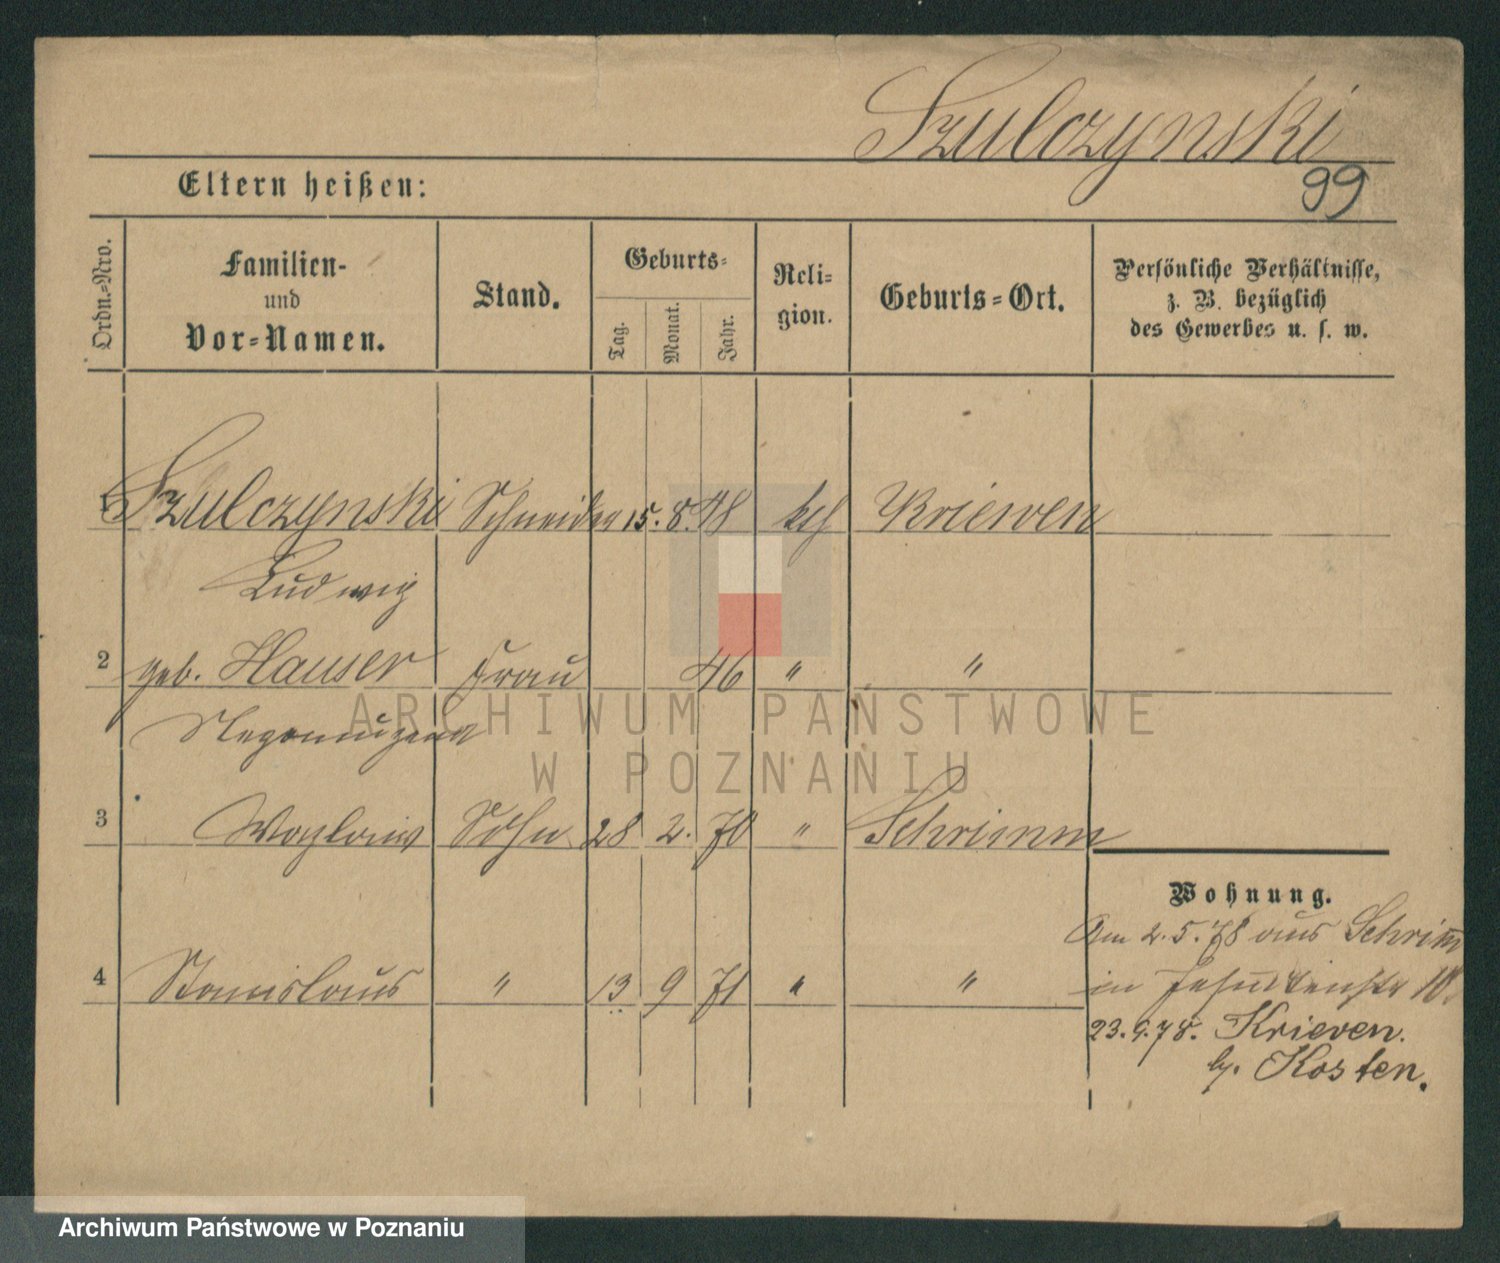 Szulczynski
99
Eltern heißen:
Ordn.-Nro.
Familien-
und
Vor-Namen.
Stand.
Geburts-
Tag.
Monat.
Jahr.
Reli-
gion.
Geburts-Ort.
Persönliche Verhältnisse,
z. B. bezüglich
des Gewerbes u. s. w.
1 Szulczynski Schneider 15. 8. 48 kth Kriewen
Ludwig
2 geb. Hauser Frau 46 " "
3 Sohn 28 2. 70 " Schrimm
4 Stanislaus " 13 9 71 " "
Wohnung.
Am 2.5.78 aus Schrim̄
in Jesuitenstr 10.
23.9.78. Krieven.
b. Kosten.
ARCHIWUM PAŃSTWOWE
W POZNANIU
Archiwum Państwowe w Poznaniu